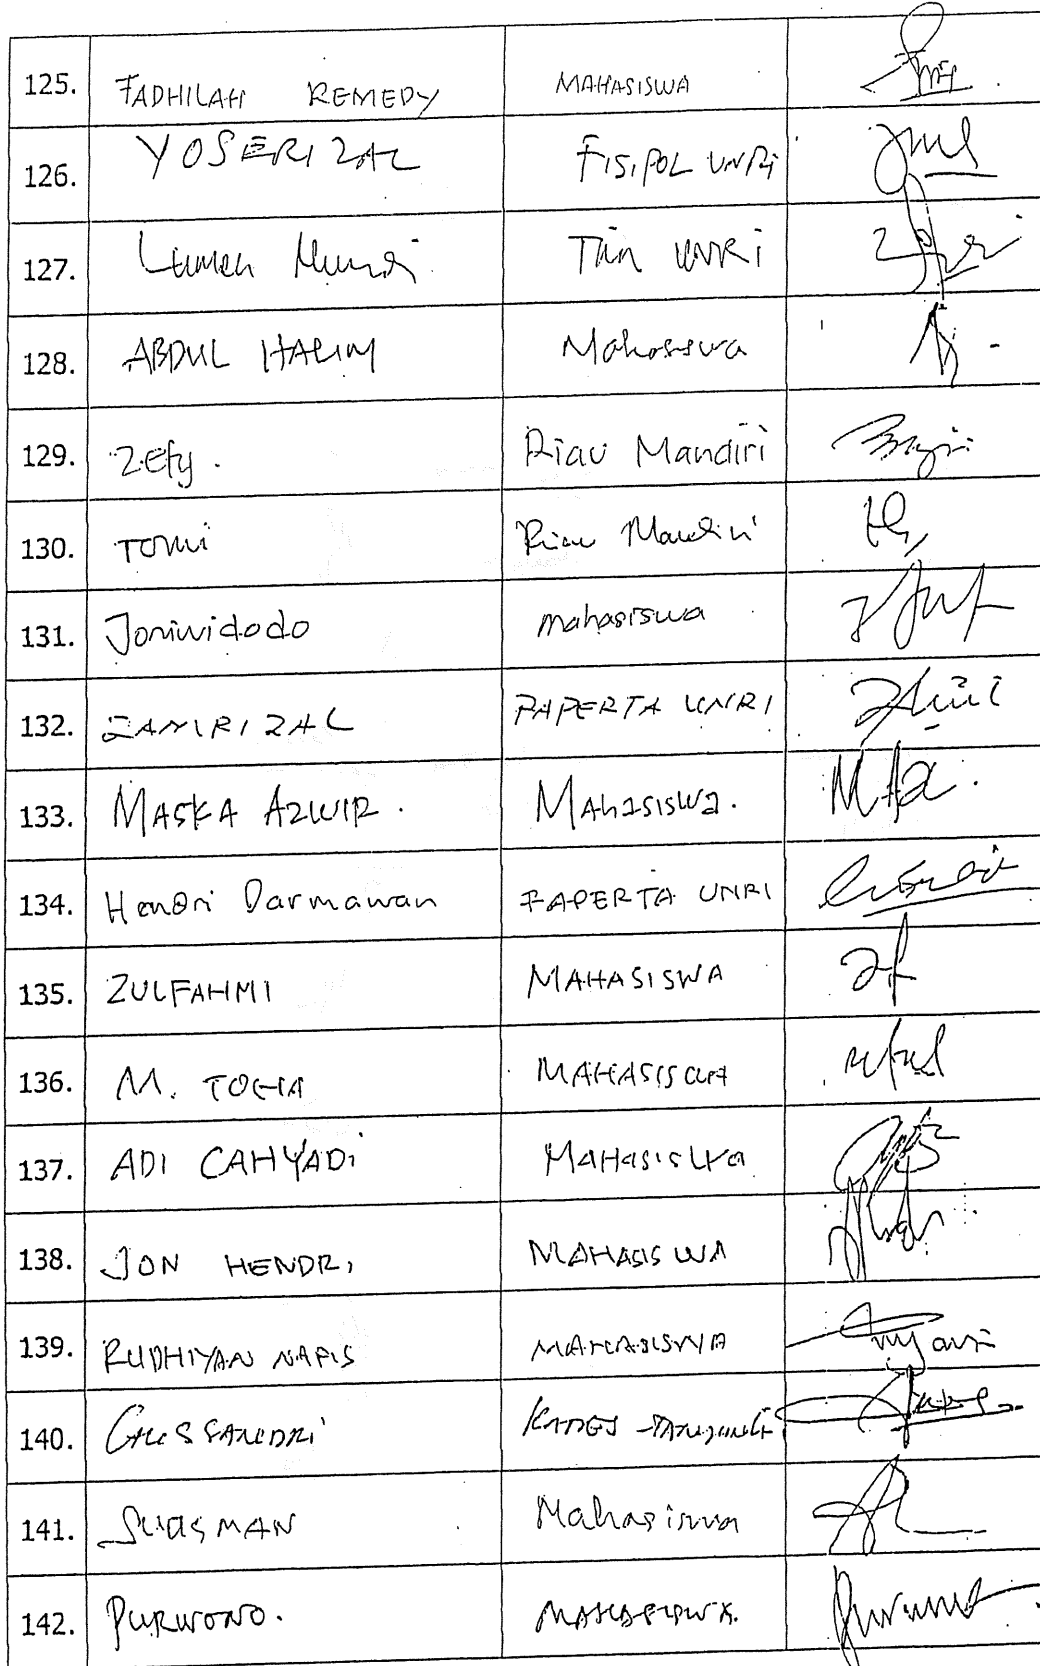 125. FADHILAH REMEDY MAHASISWA
126. YOSERIZAL FISIPOL UNRI
127. UNRI
128. ABDUL HALIM Mahasiswa
129. Zefy. Riau Mandiri
130. TOMI Riau Mandiri
131. Joniwidodo mahasiswa
132. ZAMRIZAL PAPERTA UNRI
133. MASKA AZWIR. MAhasiswa.
134. Hendri Darmawan FAPERTA UNRI
135. ZULFAHMI MAHASISWA
136. M. TOHA MAHASISWA
137. ADI CAHYADi MAHasiswa
138. JON HENDRI MAHASISWA
139. RUDHIYAN NAPIS MAHASISWA
140. KADES
141. Mahasiswa
142. PURWONO. MAHASISWA.